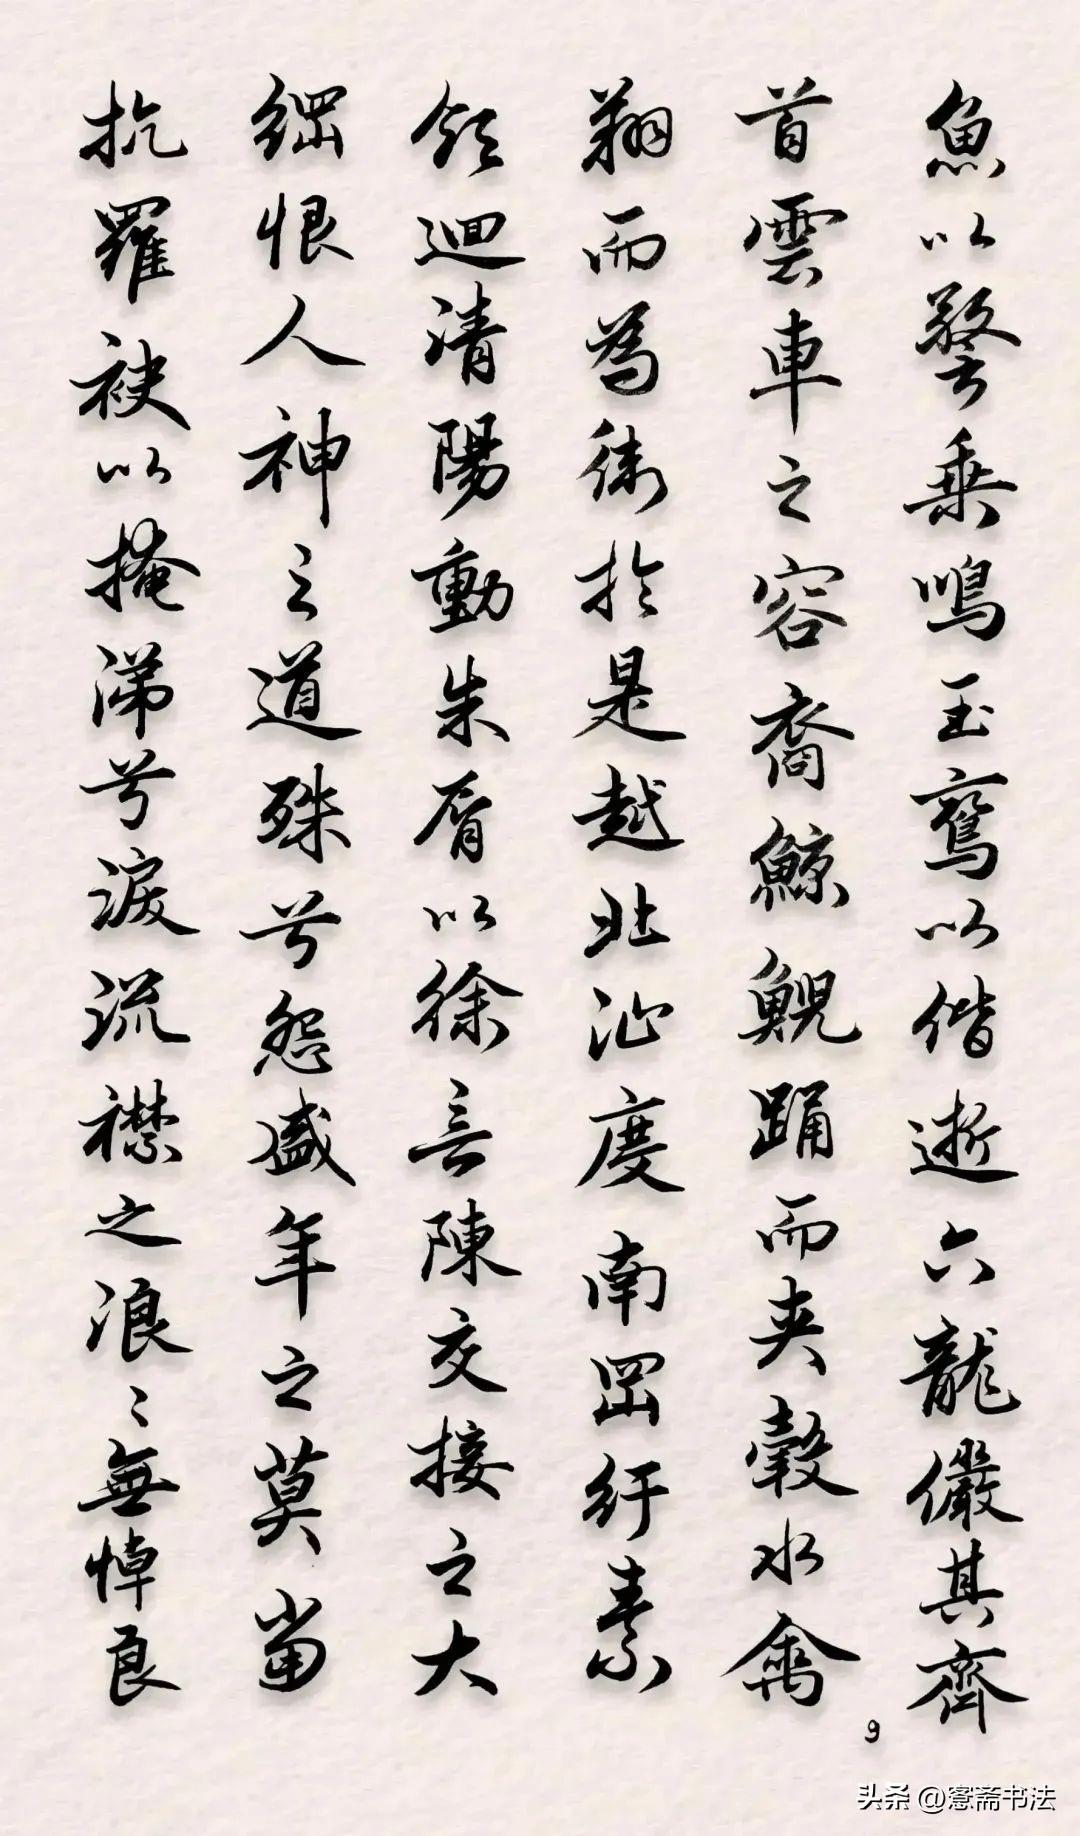 魚以警乗鳴玉鸞以偕逝六龍儼其齊
首雲車之容裔鯨鯢踊而夾轂水禽
翔而為衛於是越北沚度南岡紆素
領迴清陽動朱脣以徐言陳交接之大
綱恨人神之道殊兮怨盛年之莫當
抗羅袂以掩涕兮淚流襟之浪〻無悼良
9
头条 @愙斋书法